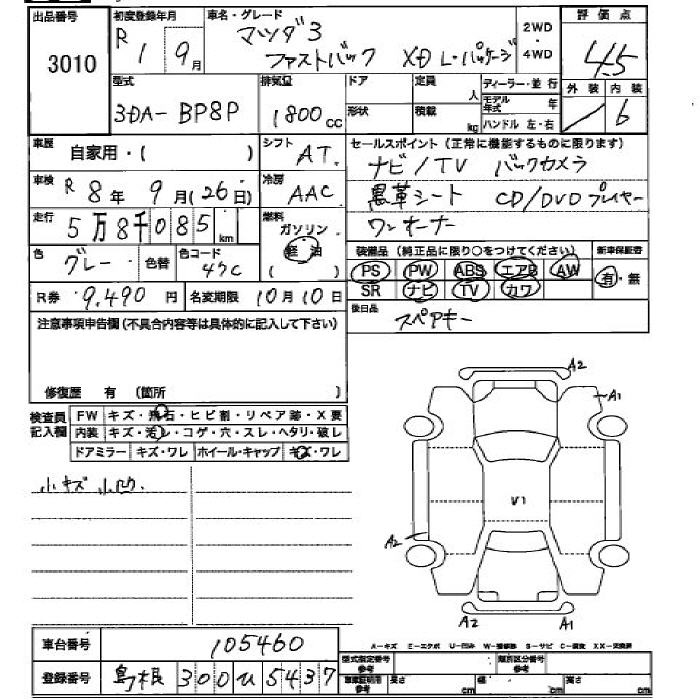 出品番号 3010
初度登録年月 R 1 9月
車名・グレード マツダ3 ファストバック XD L・パッケージ
2WD・4WD
評価点 4.5
外装 内装 6
型式 3DA-BP8P
排気量 1800cc
ドア 形状
定員 人
積載 kg
ディーラー・並行
モデル年式 年
ハンドル 左・右
車歴 自家用・( )
シフト AT
セールスポイント(正常に機能するものに限ります)
ナビ/TV バックカメラ
黒革シート CD/DVDプレイヤー
ワンオーナー
車検 R 8年 9月(26日)
冷房 AAC
走行 5万8千085km
燃料 ガソリン 軽油 ( )
色 グレー 色替
色コード 47C
装備品(純正品に限り○をつけてください)
新車保証書 有・無
PS PW ABS エアB AW
SR ナビ TV カワ
R券 9,490円 名変期限 10月10日
後日品 スペアキー
注意事項申告欄(不具合内容等は具体的に記入して下さい)
修復歴 有 (箇所 )
検査員記入欄
FW キズ・飛石・ヒビ割・リペア跡・X要
内装 キズ・汚レ・コゲ・穴・スレ・ヘタリ・破レ
ドアミラー キズ・ワレ ホイール・キャップ キズ・ワレ
小キズ 小凹
A2
A1
V1
A2
A2
A1
車台番号 105460
登録番号 島根 300 ひ 5437
A-キズ E-エクボ U-凹み W-補修跡 S-サビ C-腐食 XX-交換済
型式指定番号 参考
類別区分番号 参考
車体証明書 参考 長さ cm 幅 cm 高さ cm